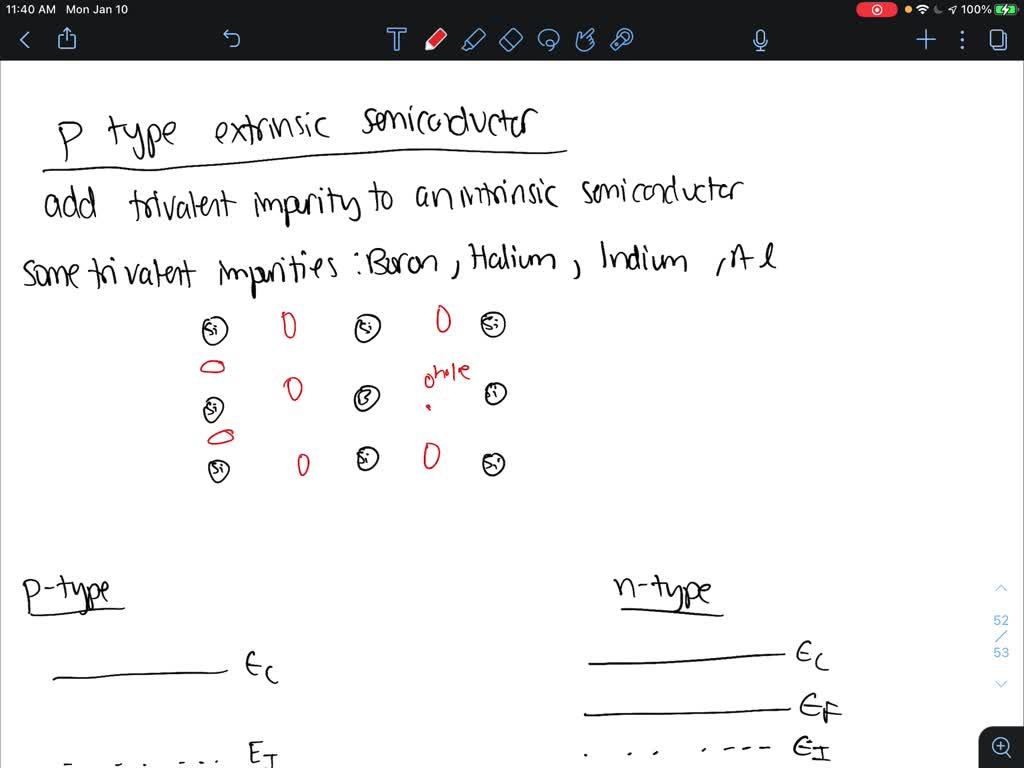 11:40 AM Mon Jan 10 100%
T
P type extrinsic semiconductor
add trivalent impurity to an intrinsic semiconductor
Some trivalent impurities : Boron , Halium , Indium , Al
Si Si Si
hole
Si B Si
Si Si Si
p-type n-type
EC EC
EF
EI EI
52
/
53